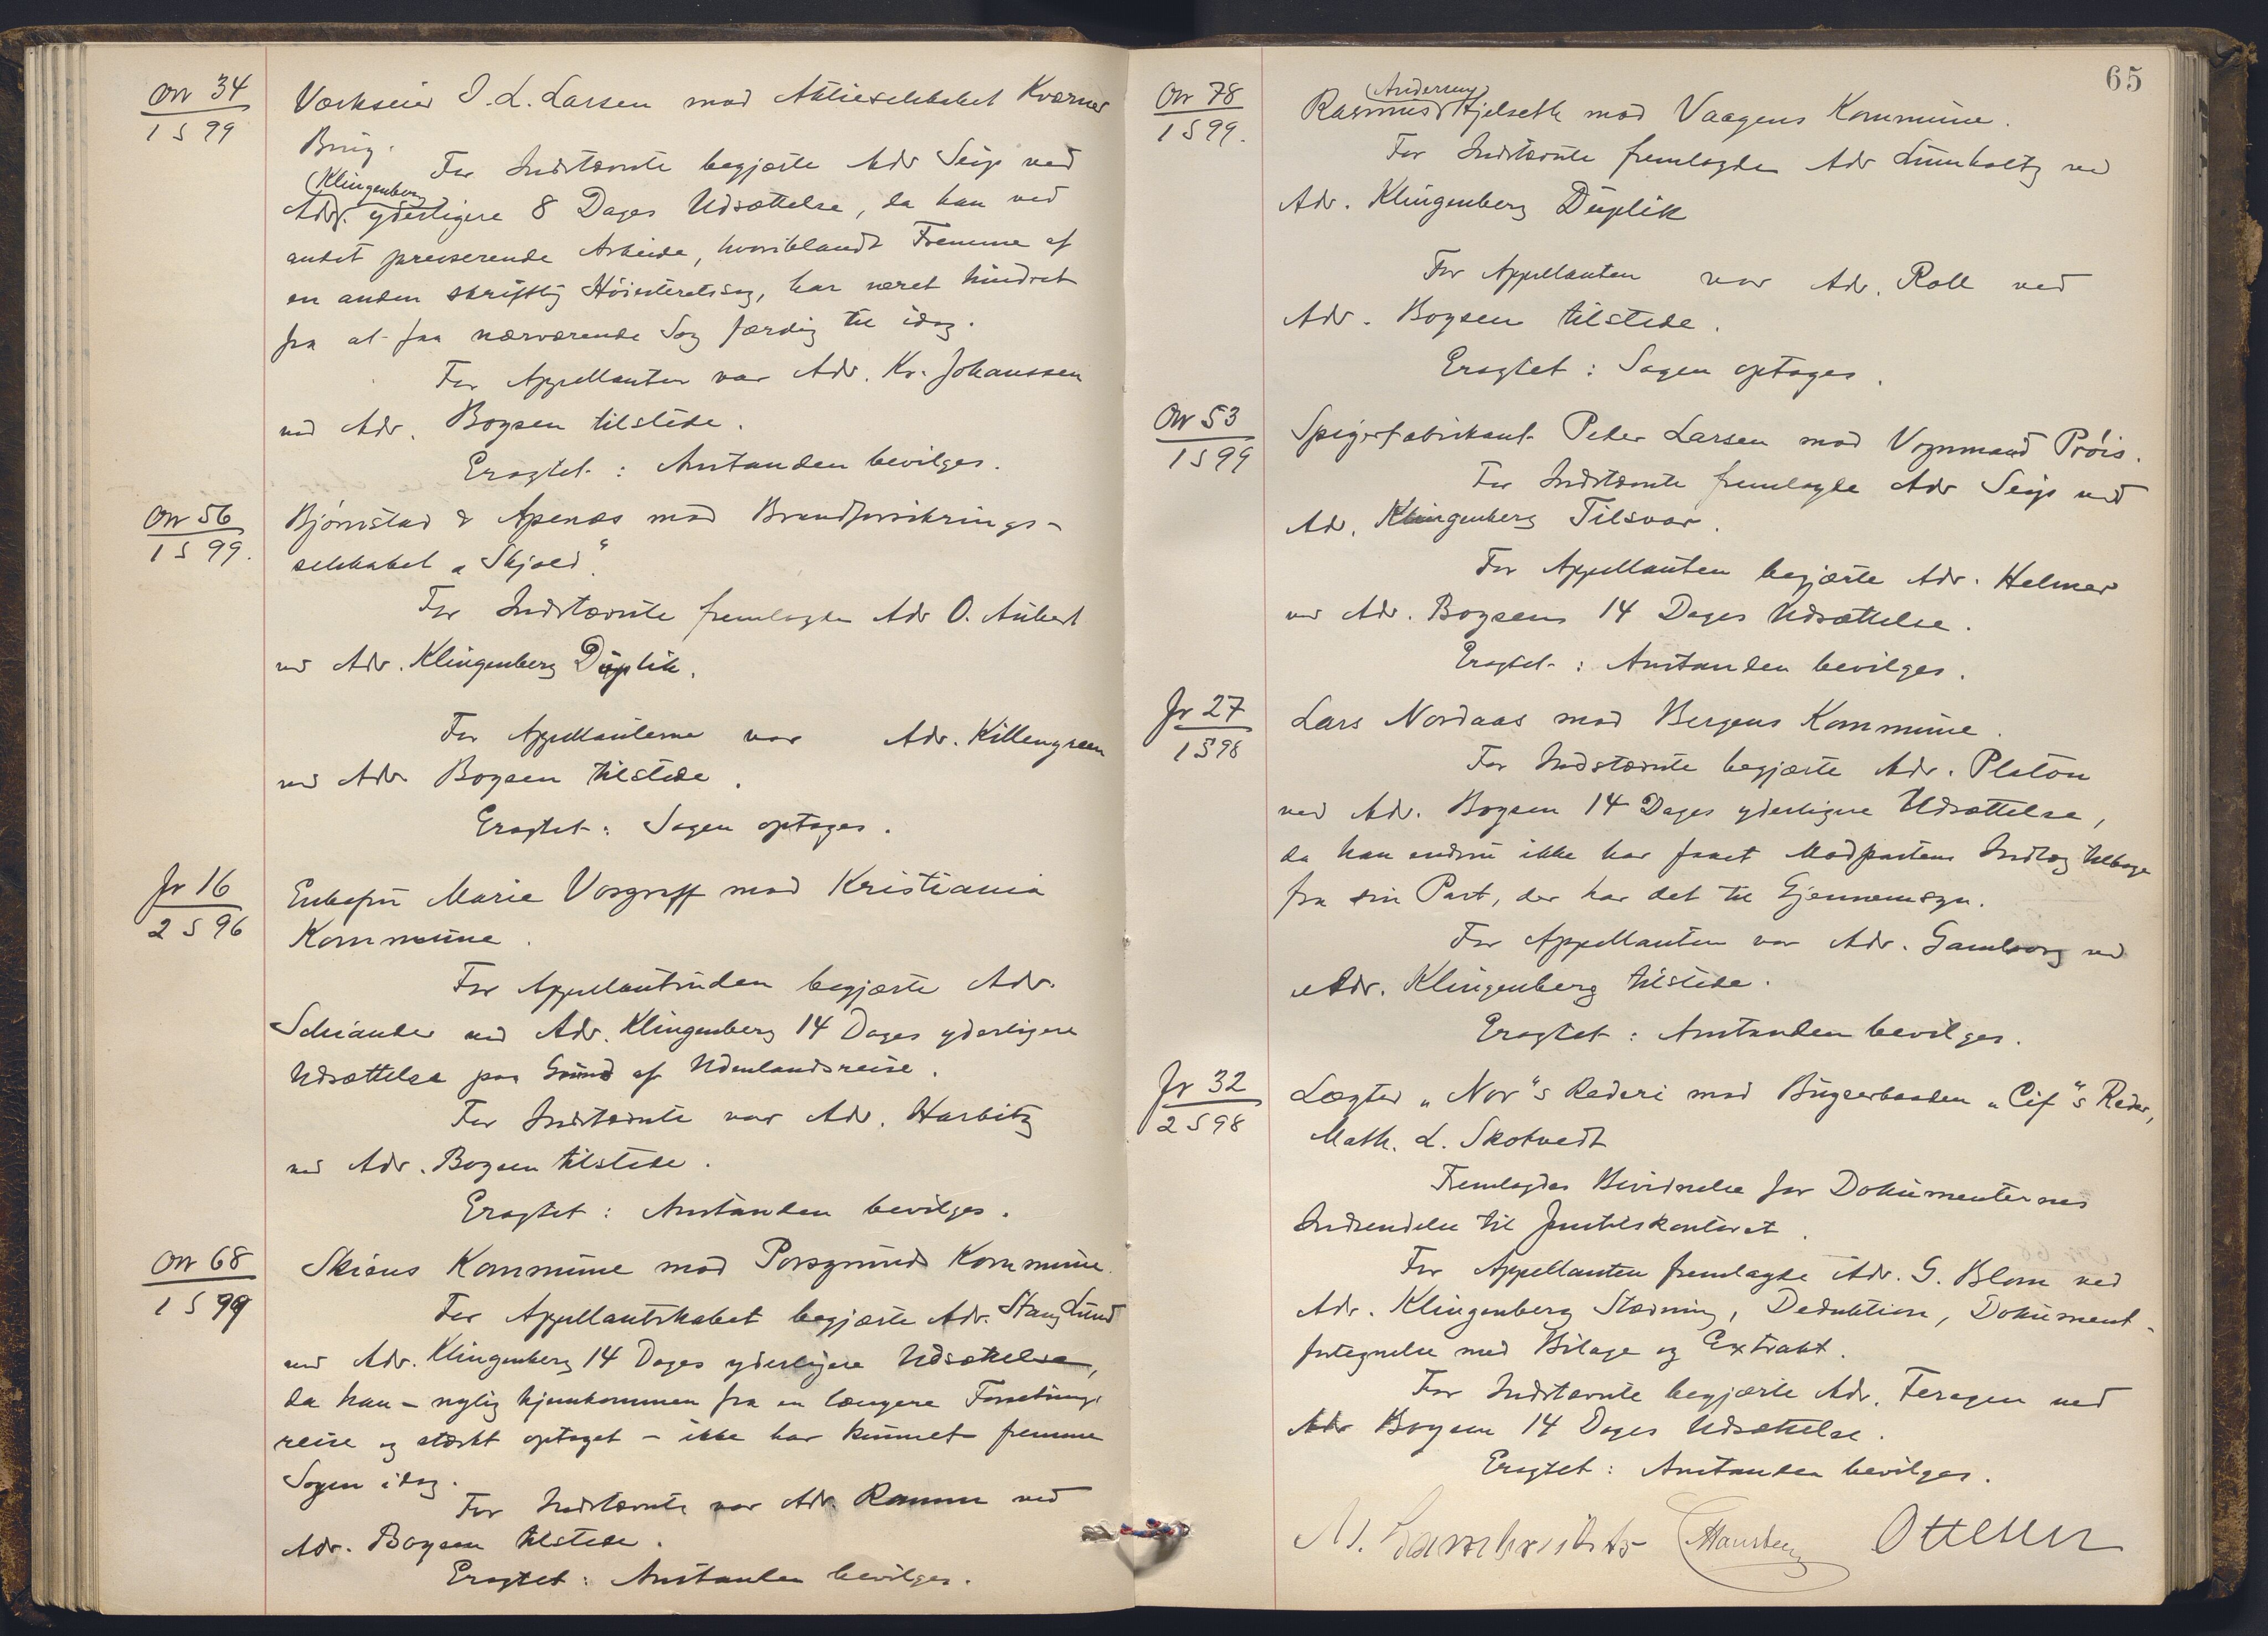 Ow 34
1 S 99
Værkseier O. L. Larsen mod Aktieselskabet Kværner
Brug.
For Indstævnte begjærte Adv Seip ved
(Klingenberg
Adv. yderligere 8 Dages Udsættelse, da han ved
andet presserende Arbeide, hvoriblandt Fremme af
en anden skriftlig Høiesteretssag, har været hindret
fra at faa nærværende Sag færdig til idag.
For Appellanten var Adv. Kr. Johanssen
ved Adv. Boysen tilstede.
Eragtet: Anstanden bevilges.
Ow 56
1 S 99.
Bjørnstad & Apenæs mod Brandforsikrings-
selskabet „Skjold“.
For Indstævnte fremlagde Adv O. Aubert
ved Adv. Klingenberg Duplik.
For Appellanterne var Adv. Killengreen
ved Adv Boysen tilstede.
Eragtet: Sagen optages.
Jr 16
2 S 96
Enkefru Marie Vosgraff mod Kristiania
Kommune.
For Appellantinden begjærte Adv.
Schiander ved Adv. Klingenberg 14 Dages yderligere
Udsættelse paa Grund af Udenlandsreise.
For Indstævnte var Adv. Harbitz
ved Adv. Boysen tilstede.
Eragtet: Anstanden bevilges.
Ow 68
1 S 99
Skiens Kommune mod Porsgrunds Kommune.
For Appellantskabet begjærte Adv. Stang Lund
ved Adv. Klingenberg 14 Dages yderligere Udsættelse,
da han – nylig hjemkommen fra en længere Forretnings
reise og stærkt optaget – ikke har kunnet fremme
Sagen idag.
For Indstævnte var Adv. Ramm ved
Adv. Boysen tilstede.
Eragtet: Anstanden bevilges.
65
Ow 78
1 S 99.
(Andersen)
Rasmus Hjelseth mod Vaagens Kommune.
For Indstævnte fremlagde Adv Lumholtz ved
Adv. Klingenberg Duplik
For Appellanten var Adv. Roll ved
Adv. Boysen tilstede.
Eragtet: Sagen optages.
Ow 53
1 S 99
Spigerfabrikant Peder Larsen mod Vognmand Prøis.
For Indstævnte fremlagde Adv Seip ved
Ad. Klingenberg Tilsvar.
For Appellanten begjærte Adv. Helmer
ved Adv. Boysens 14 Dages Udsættelse.
Eragtet: Anstanden bevilges.
Jr 27
1 S 98
Lars Nordaas mod Bergens Kommune.
For Indstævnte begjærte Adv. Platou
ved Adv. Boysen 14 Dages yderligere Udsættelse,
da han endnu ikke har faaet Modpartens Indlæg tilbage
fra sin Part, der har det til Gjennemsyn.
For Appellanten var Adv. Gamborg ved
Adv. Klingenberg tilstede.
Eragtet: Anstanden bevilges.
Jr 32
2 S 98
Lægter „Nor“s Rederi mod Bugserbaaden „Cif“s Reder,
Math. L. Skotvedt
Fremlagdes Bevidnelse for Dokumenternes
Indsendelse til Justitskontoret.
For Appellanten fremlagde Adv. G. Blom ved
Adv. Klingenberg Stævning, Deduktion, Dokument-
fortegnelse med Bilage og Extrakt.
For Indstævnte begjærte Adv. Feragen ved
Adv Boysen 14 Dages Udsættelse.
Eragtet: Anstanden bevilges.
Lambrechts Hansteen Ottesen